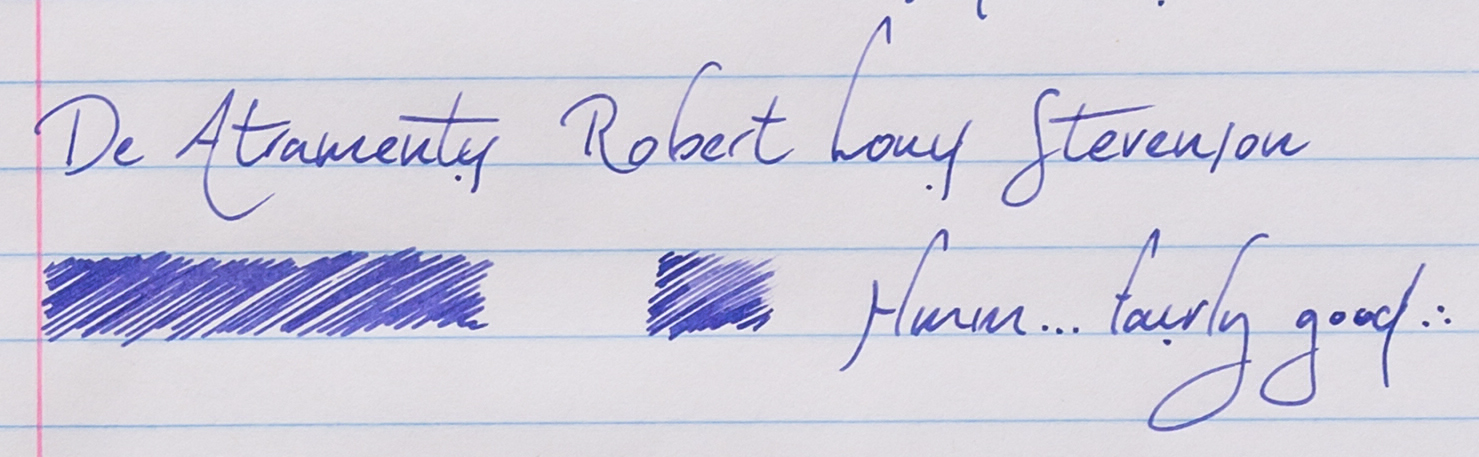 De Atramentis Robert Louis Stevenson
Hmm... fairly good :.